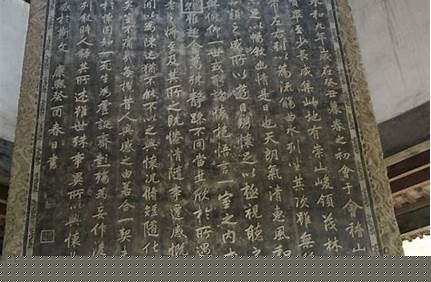 永和九年歲在癸丑暮春之初會于會稽山
畢至少長咸集此地有崇山峻領茂林
帶左右引以為流觴曲水列坐其次雖無
暢敘幽情是日也天朗氣清惠風
類之盛所以遊目騁懷足以極視聽之
與俯仰一世或取諸懷抱悟言一室之內或
趣舍萬殊靜躁不同當其欣於所遇
將至及其所之既惓情隨事遷感慨
間以為陳迹猶不能不以之興懷況脩短隨化
矣豈不痛哉每攬昔人興感之由若合一契
於懷固知一死生為虛誕齊彭殤為妄作後
列敘時人錄其所述雖世殊事異所以興懷
於斯文 康熙癸酉春日書